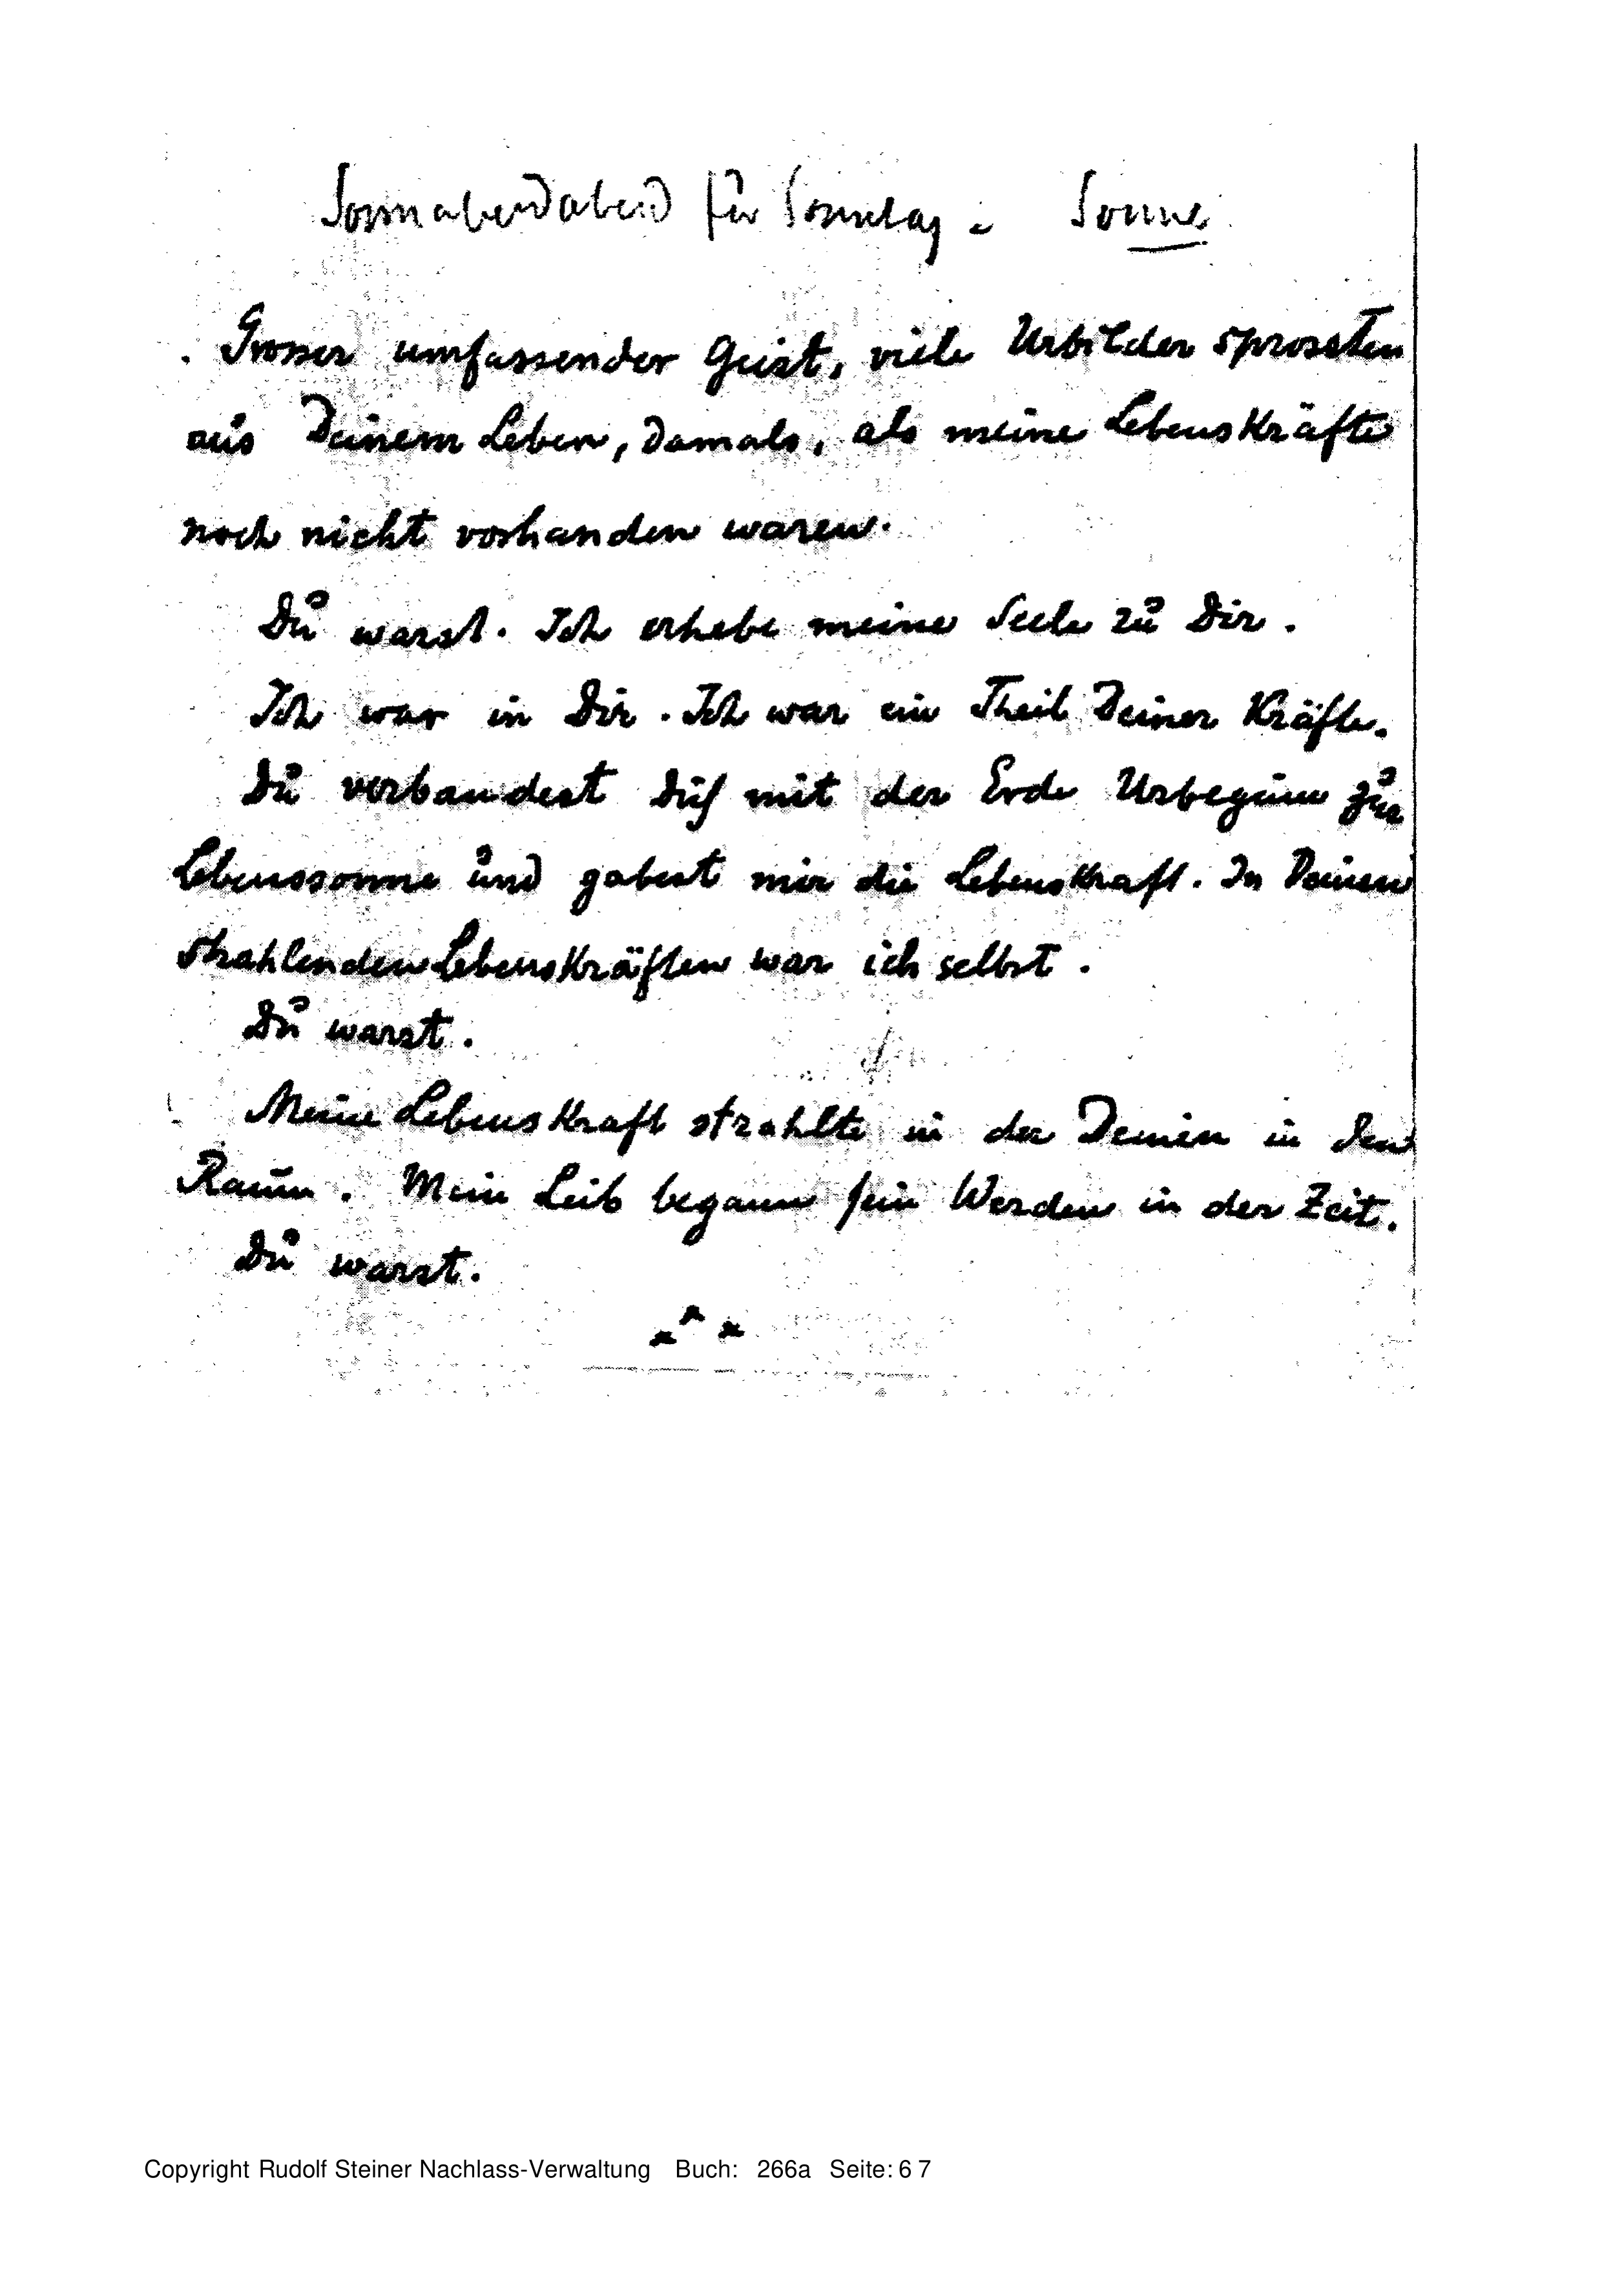 Sonnabendabend für Sonntag = Sonne
Grosser umfassender Geist, viele Urbilder sprossten
aus Deinem Leben, damals, als meine Lebenskräfte
noch nicht vorhanden waren.
Du warst. Ich erhebe meine Seele zu Dir.
Ich war in Dir. Ich war ein Theil Deiner Kräfte.
Du verbandest Dich mit der Erde Urbeginn zur
Lebenssonne und gabest mir die Lebenskraft. In Deinen
strahlenden Lebenskräften war ich selbst.
Du warst.
Meine Lebenskraft strahlte in der Deinen in den
Raum. Mein Leib begann sein Werden in der Zeit.
Du warst.
Copyright Rudolf Steiner Nachlass-Verwaltung Buch: 266a Seite: 67